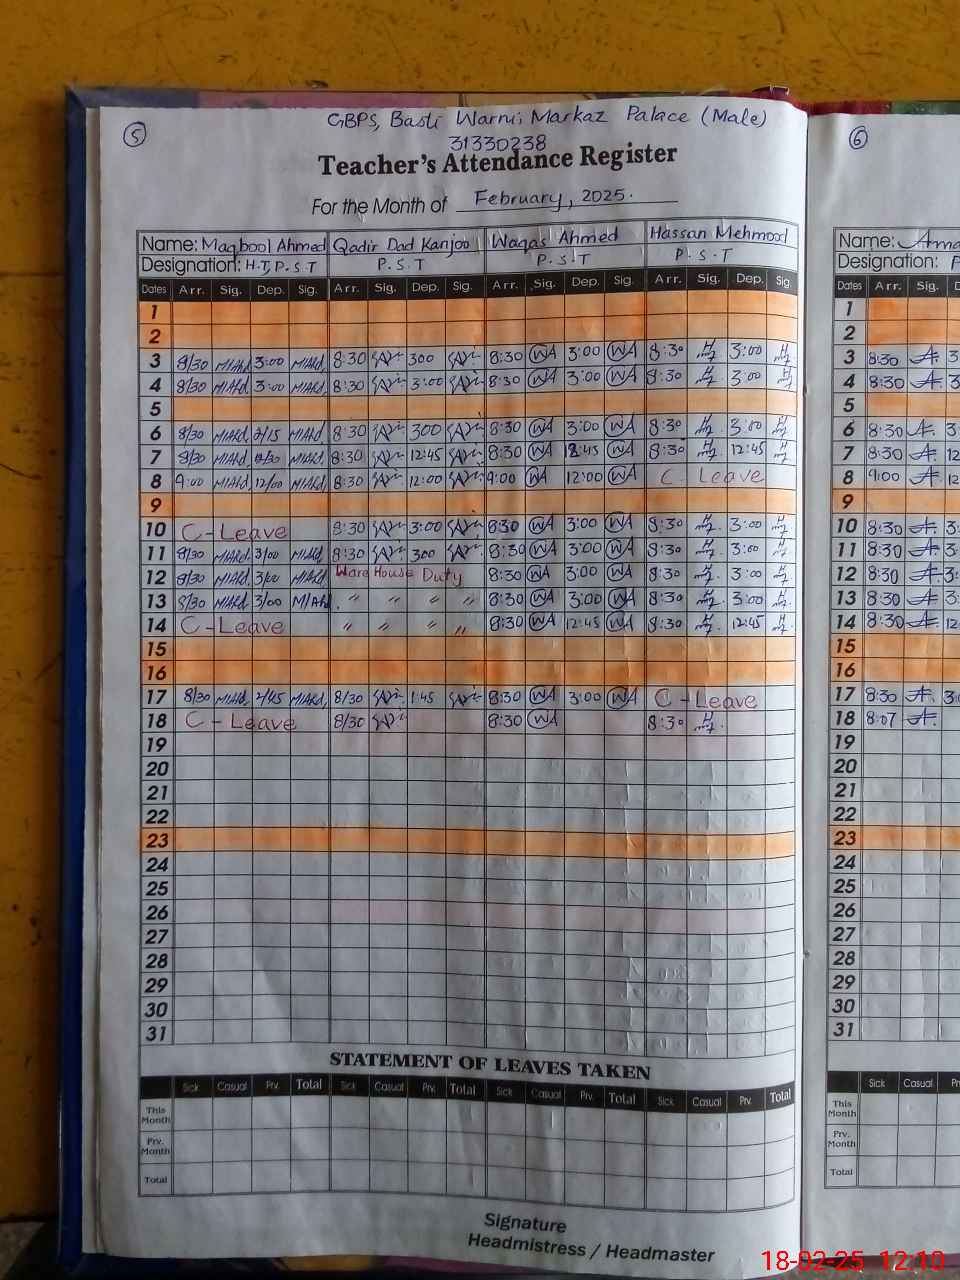 5
GBPS, Basti Warni; Markaz Palace (Male)
31330238
Teacher's Attendance Register
For the Month of February, 2025.
Name: Maqbool Ahmed Qadir Dad Kanjoo Waqas Ahmed Hassan Mehmood
Designation: H.T, P.S.T P.S.T P.S.T P.S.T
Dates Arr. Sig. Dep. Sig. Arr. Sig. Dep. Sig. Arr. Sig. Dep. Sig. Arr. Sig. Dep. Sig.
1
2
3 8/30 3:00 8:30 300 8:30 WA 3:00 WA 8:30 3:00
4 8/30 3:00 8:30 3:00 8:30 WA 3:00 WA 8:30 3:00
5
6 8/30 2/15 8:30 300 8:30 WA 3:00 WA 8:30 3:00
7 8/30 8:30 12:45 8:30 WA 12:45 WA 8:30 12:45
8 9:00 12/00 8:30 12:00 9:00 WA 12:00 WA C-Leave
9
10 C-Leave 8:30 3:00 8:30 WA 3:00 WA 8:30 3:00
11 8/30 3/00 8:30 300 8:30 WA 3:00 WA 8:30 3:00
12 8/30 3/00 Ware House Duty 8:30 WA 3:00 WA 8:30 3:00
13 8/30 3/00 " " " " 8:30 WA 3:00 WA 8:30 3:00
14 C-Leave " " " " 8:30 WA 12:45 WA 8:30 12:45
15
16
17 8/30 2/45 8/30 1:45 8:30 WA 3:00 WA C-Leave
18 C-Leave 8/30 8:30 WA 8:30
19
20
21
22
23
24
25
26
27
28
29
30
31
STATEMENT OF LEAVES TAKEN
Sick Casual Prv. Total Sick Casual Prv. Total Sick Casual Prv. Total Sick Casual Prv. Total
This Month
Prv. Month
Total
Signature
Headmistress / Headmaster
6
Name:
Designation: P
Dates Arr. Sig.
1
2
3 8:30 A 3
4 8:30 A 3
5
6 8:30 A 3:
7 8:30 A 12
8 9:00 A 12
9
10 8:30 A 3:
11 8:30 A 3:
12 8:30 A 3:
13 8:30 A 3:
14 8:30 A 12
15
16
17 8:30 A 3:
18 8:07 A
19
20
21
22
23
24
25
26
27
28
29
30
31
Sick Casual
This Month
Prv. Month
Total
18-02-25 12:10